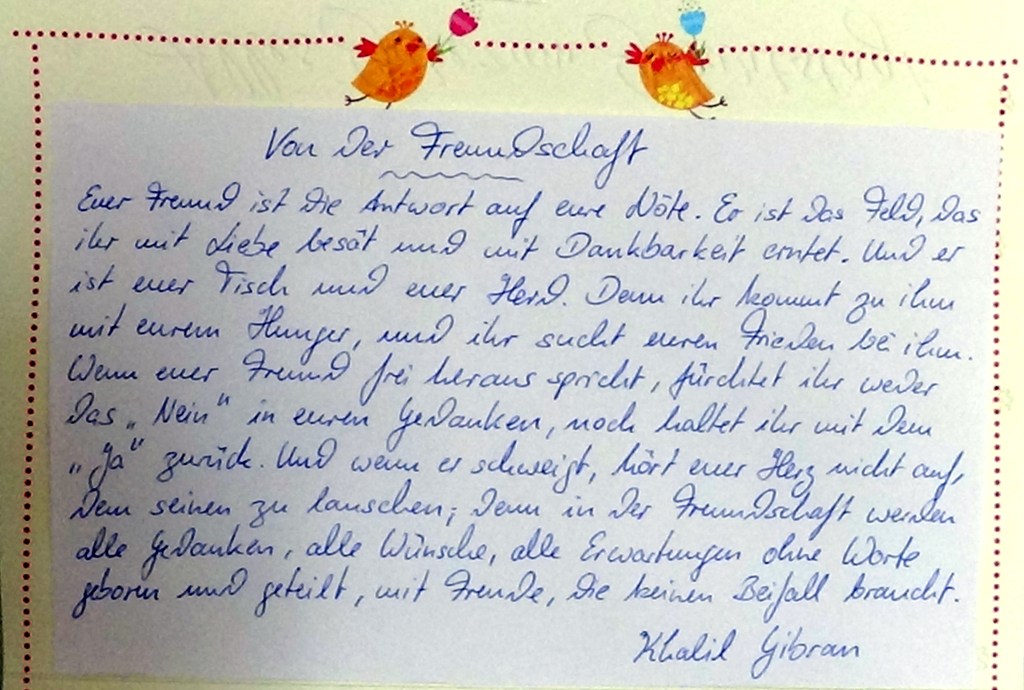 Von der Freundschaft
Euer Freund ist die Antwort auf eure Nöte. Er ist das Feld, das
ihr mit Liebe besät und mit Dankbarkeit erntet. Und er
ist euer Tisch und euer Herd. Denn ihr kommt zu ihm
mit eurem Hunger, und ihr sucht euren Frieden bei ihm.
Wenn euer Freund frei heraus spricht, fürchtet ihr weder
das „Nein" in euren Gedanken, noch haltet ihr mit dem
„Ja" zurück. Und wenn er schweigt, hört euer Herz nicht auf,
dem seinen zu lauschen; denn in der Freundschaft werden
alle Gedanken, alle Wünsche, alle Erwartungen ohne Worte
geboren und geteilt, mit Freude, die keinen Beifall braucht.
Khalil Gibran